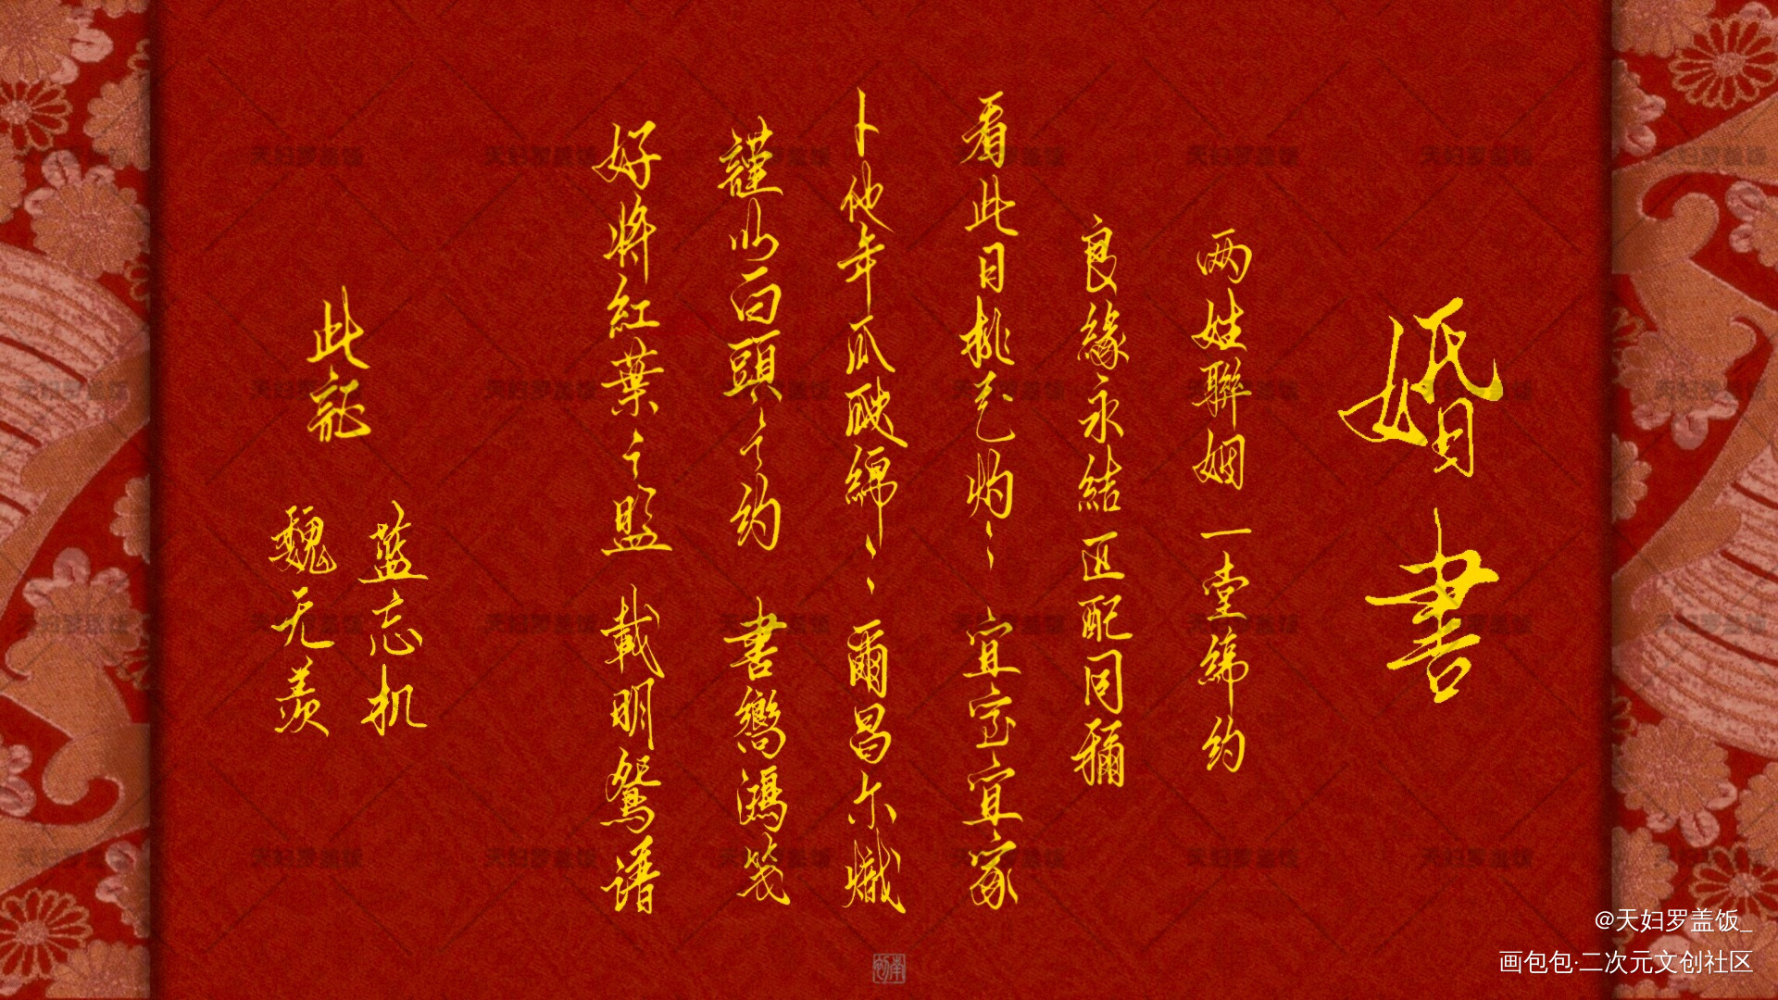 婚書
两姓聯姻 一堂締约
良緣永結 匹配同稱
看此日桃花灼灼 宜室宜家
卜他年瓜瓞綿綿 爾昌尔熾
謹以白頭之约 書嚮鴻笺
好将紅葉之盟 載明鴛谱
此証
蓝忘机
魏无羡
@天妇罗盖饭_
画包包·二次元文创社区